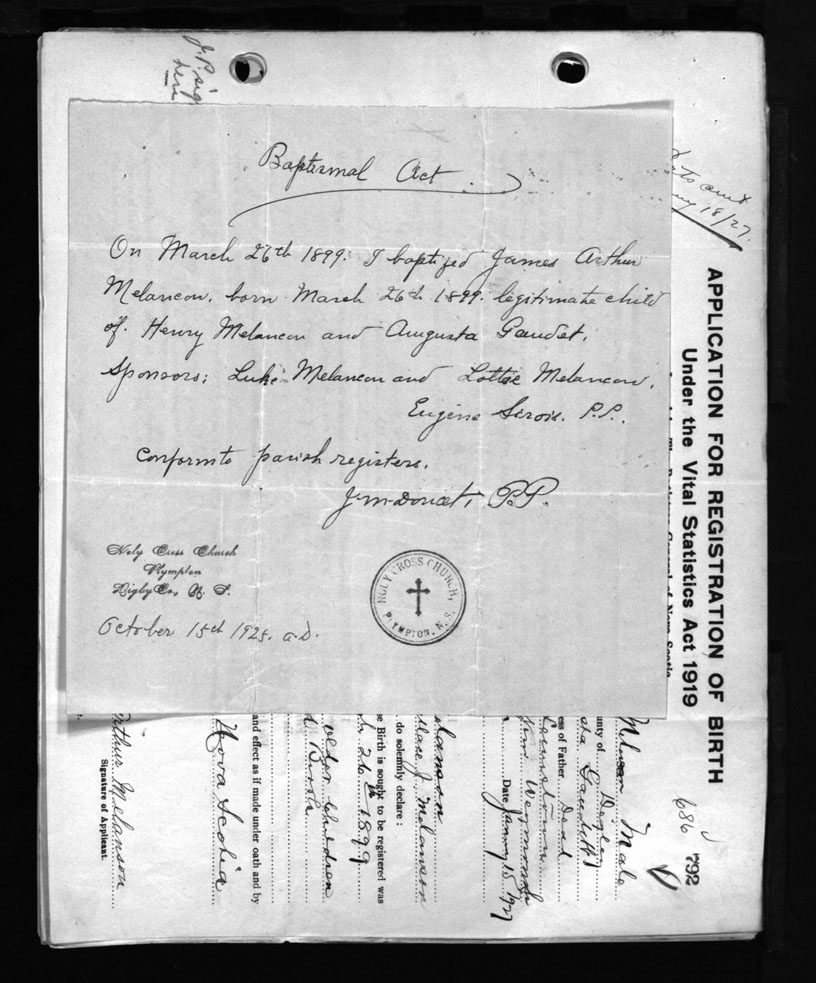 J.P. sig
here
Baptismal Act.
On March 26th 1899. I baptized James Arthur
Melancon, born March 26th 1899. legitimate child
of Henry Melancon and Augusta Gaudet.
Sponsors: Luke Melancon and Lottie Melancon.
Eugène Sirois. P.P.
Conform to parish registers.
P.P.
Holy Cross Church
Plympton
Digby Co., N. S.
October 15th 1925. a.D.
HOLY CROSS CHURCH,
PLYMPTON, N.S.
18/27.
APPLICATION FOR REGISTRATION OF BIRTH
Under the Vital Statistics Act 1919
686
792
Male
unty of Digby
Gaudet
ess of Father Dead
Weymouth
Date January 15, 1927
J. Melanson
do solemnly declare :
e Birth is sought to be registered was
26th 1899
older children
Birth
and effect as if made under oath and by
Nova Scotia
Arthur Melanson
Signature of Applicant.